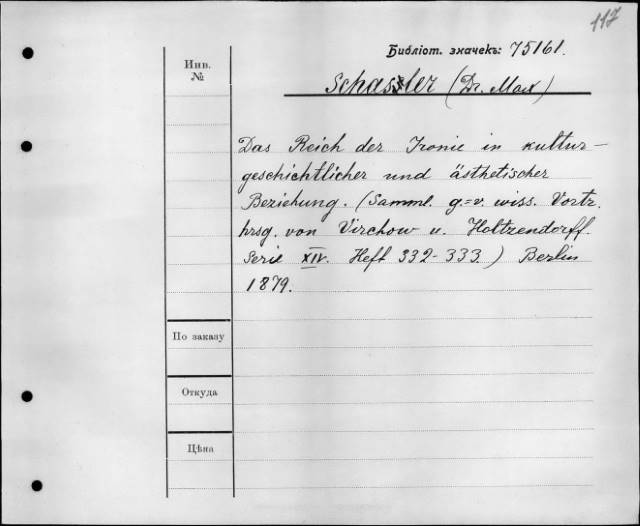 117
Библіот. значекъ: 75161.
Инв.
№
Schasler (Dr. Max)
Das Reich der Ironie in kultur-
geschichtlicher und ästhetischer
Beziehung. (Samml. g.=v. wiss. Vortr.
hrsg. von Virchow u. Holtzendorff.
Serie XIV. Heft 332-333.) Berlin
1879.
По заказу
Откуда
Цѣна